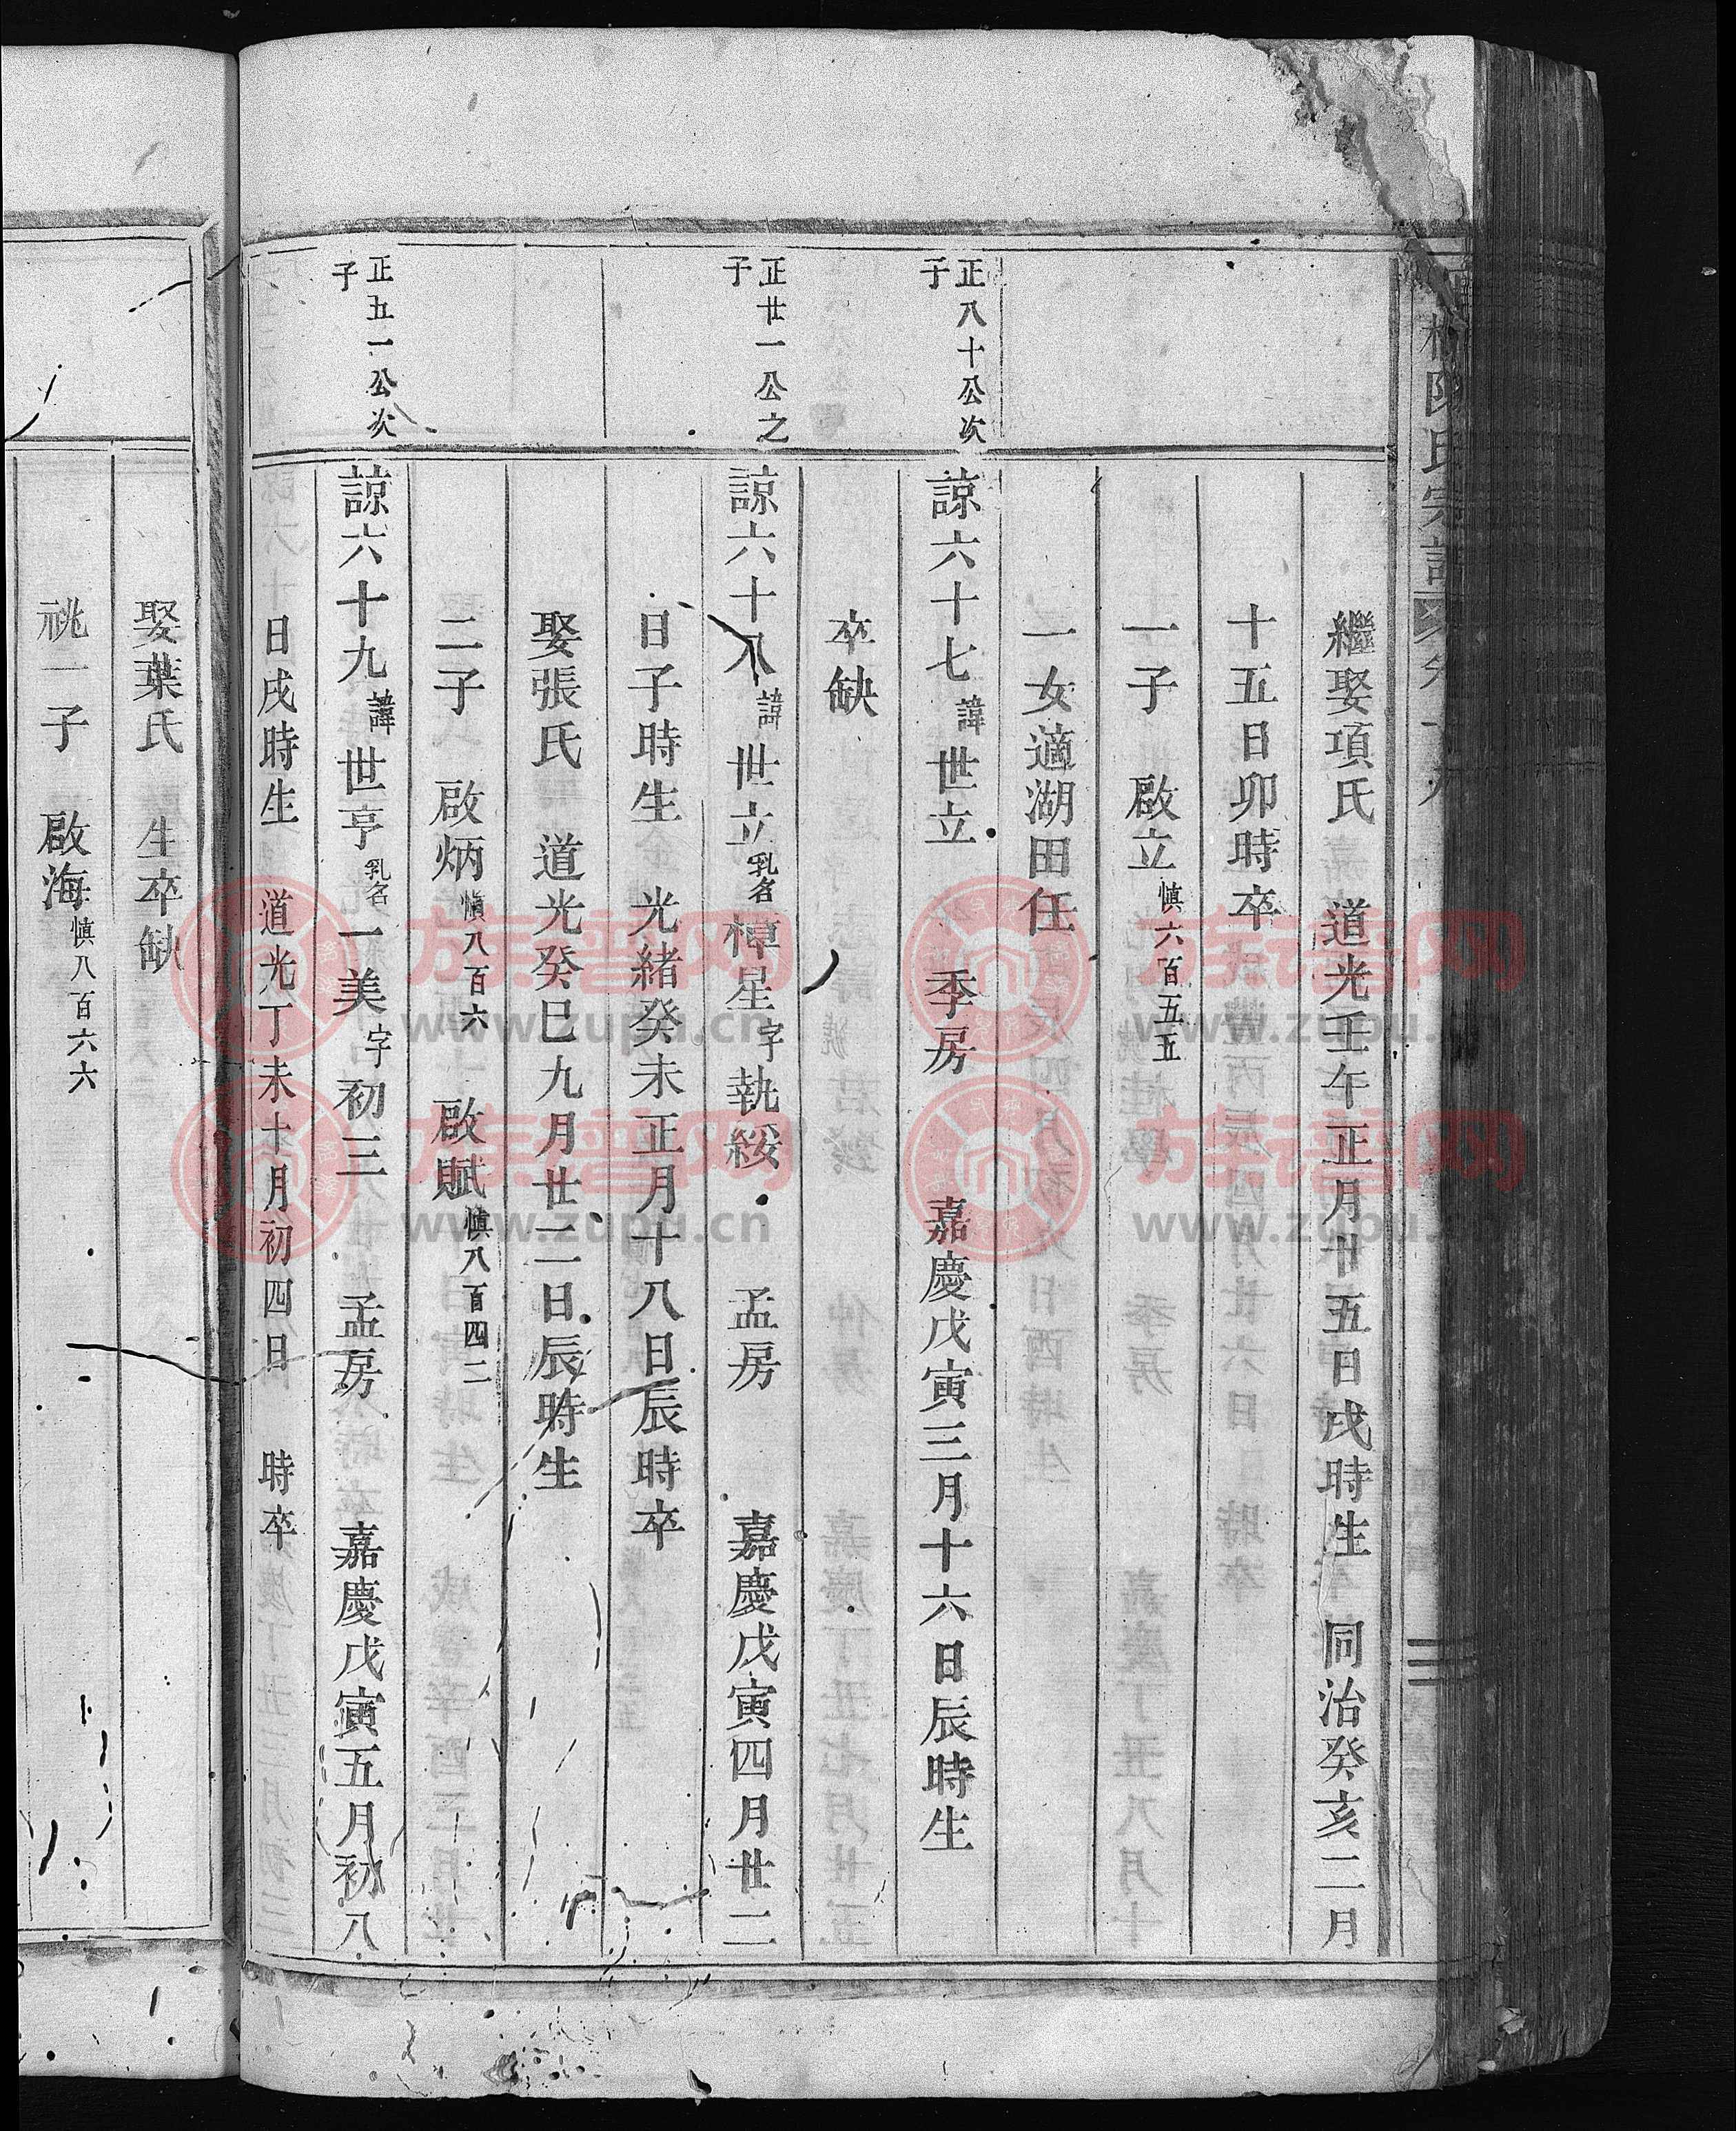 繼娶項氏　道光壬午正月廿五日戌時生　同治癸亥二月
十五日卯時卒
一子　啟立慎六百五五
一女適湖田任
正八十公次子
諒六十七諱世立　季房　嘉慶戊寅三月十六日辰時生
卒缺
正廿一公之子
諒六十八諱世立乳名樟星字執綏　孟房　嘉慶戊寅四月廿二
日子時生　光緒癸未正月十八日辰時卒
娶張氏　道光癸巳九月廿二日辰時生
二子　啟炳慎八百六　啟賦慎八百四二
正五一公次子
諒六十九諱世亨乳名一美字初三　孟房　嘉慶戊寅五月初八
日戌時生　道光丁未十月初四日　時卒
娶葉氏　生卒缺
祧一子　啟海慎八百六六
族谱网
www.zupu.cn
族谱网
www.zupu.cn
族谱网
www.zupu.cn
族谱网
www.zupu.cn